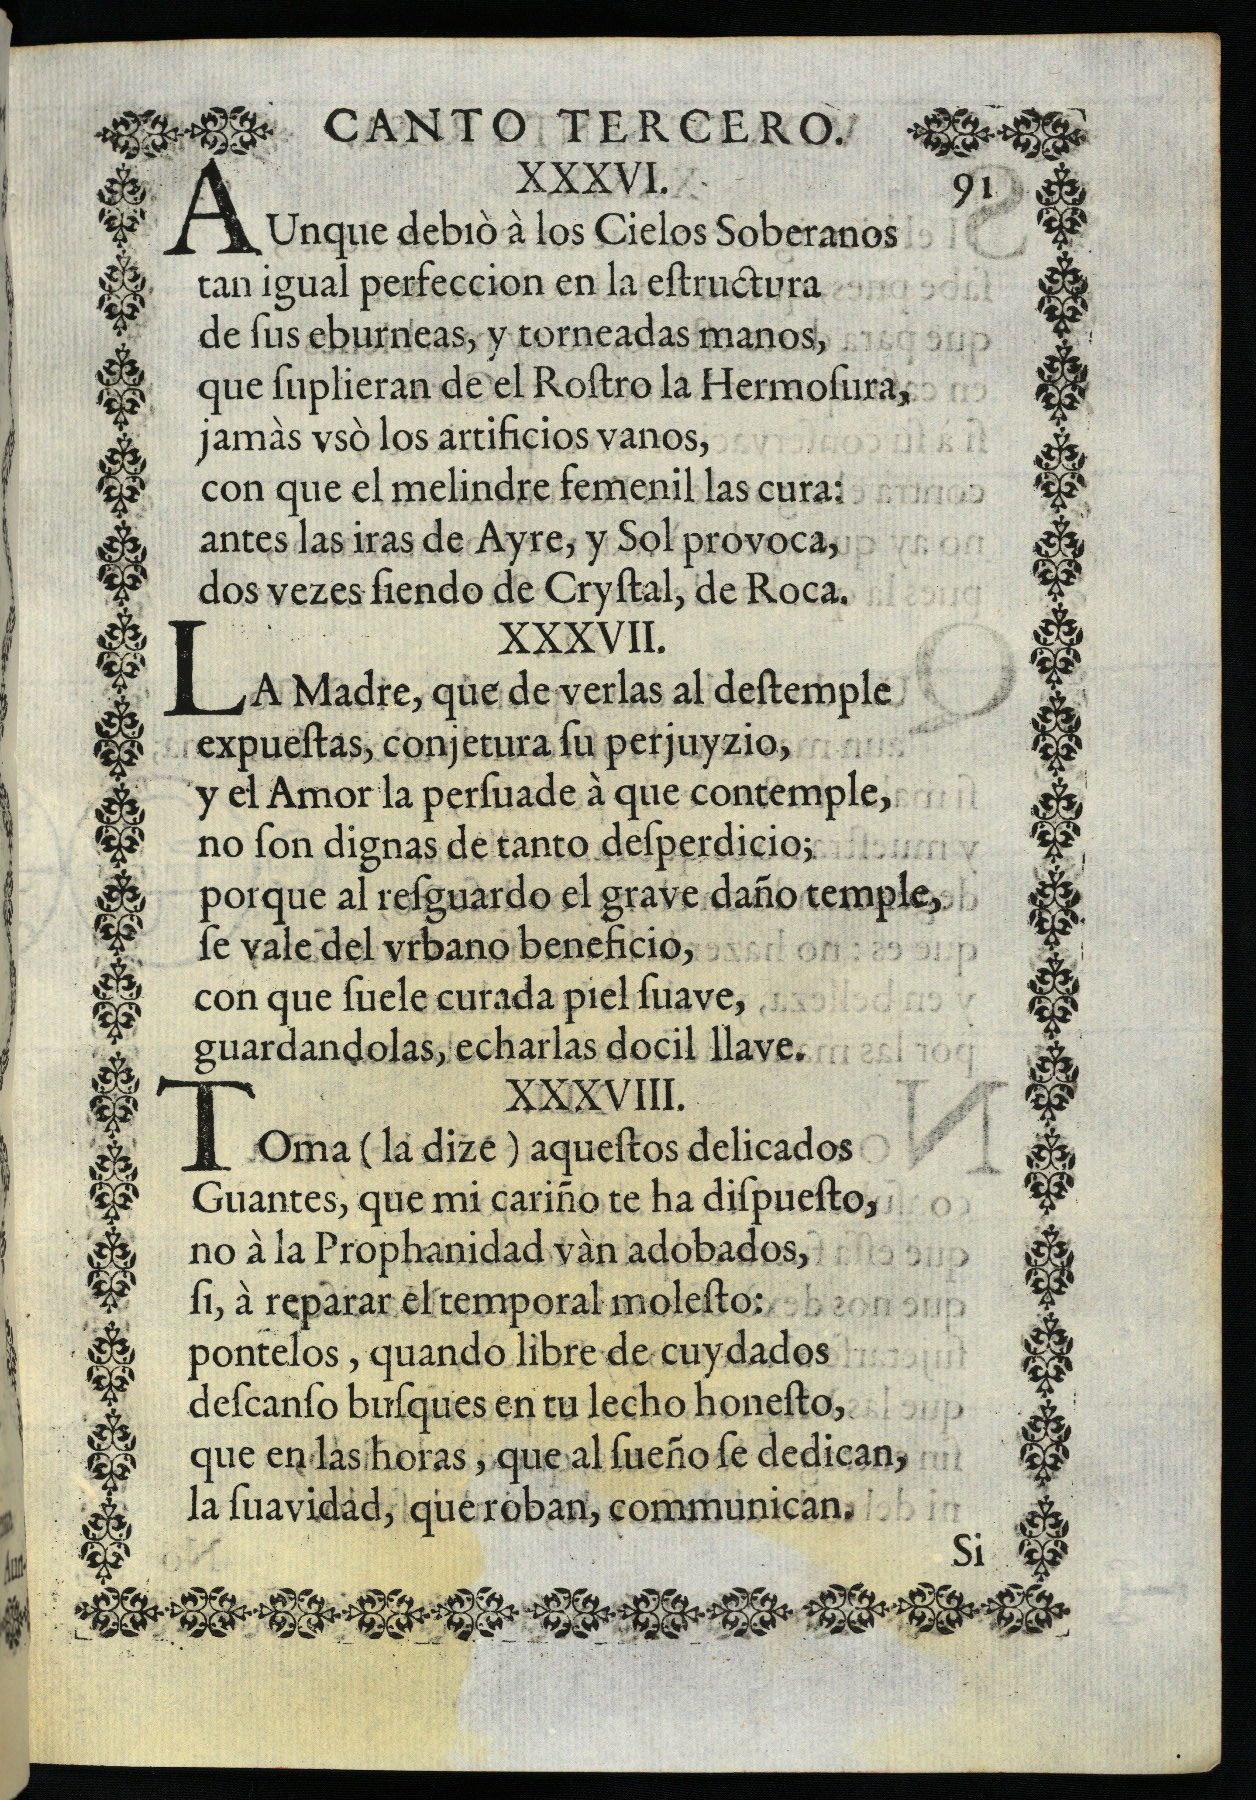 CANTO TERCERO.
XXXVI. 91
AUnque debiò à los Cielos Soberanos
tan igual perfeccion en la eſtructura
de ſus eburneas, y torneadas manos,
que ſuplieran de el Roſtro la Hermoſura,
jamàs vsò los artificios vanos,
con que el melindre femenil las cura:
antes las iras de Ayre, y Sol provoca,
dos vezes ſiendo de Cryſtal, de Roca.
XXXVII.
LA Madre, que de verlas al deſtemple
expueſtas, conjetura ſu perjuyzio,
y el Amor la perſuade à que contemple,
no ſon dignas de tanto deſperdicio;
porque al reſguardo el grave daño temple,
ſe vale del vrbano beneficio,
con que ſuele curada piel ſuave,
guardandolas, echarlas docil llave.
XXXVIII.
TOma ( la dize ) aqueſtos delicados
Guantes, que mi cariño te ha diſpueſto,
no à la Prophanidad vàn adobados,
ſi, à reparar el temporal moleſto:
pontelos, quando libre de cuydados
deſcanſo buſques en tu lecho honeſto,
que en las horas, que al ſueño ſe dedican,
la ſuavidad, que roban, communican.
Si
Aun-